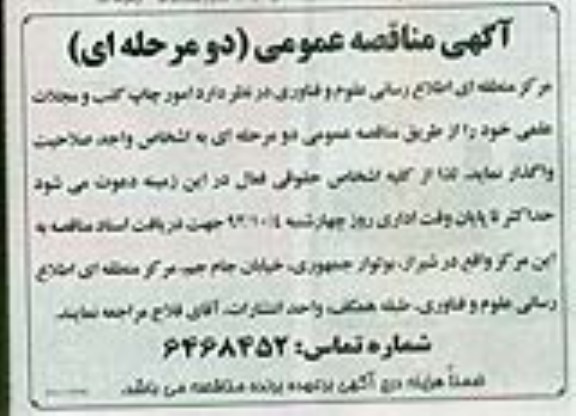 آگهی مناقصه عمومی (دو مرحله ای)
مرکز منطقه ای اطلاع رسانی علوم و فناوری در نظر دارد امور چاپ کتب و مجلات
علمی خود را از طریق مناقصه عمومی دو مرحله ای به اشخاص واجد صلاحیت
واگذار نماید، لذا از کلیه اشخاص حقوقی فعال در این زمینه دعوت می شود
حداکثر تا پایان وقت اداری روز چهارشنبه ۹۲/۱۰/۴ جهت دریافت اسناد مناقصه به
این مرکز واقع در شیراز، بولوار جمهوری، خیابان جام جم، مرکز منطقه ای اطلاع
رسانی علوم و فناوری، طبقه همکف، واحد انتشارات، آقای فلاح مراجعه نمایند.
شماره تماس: ۶۴۶۸۴۵۲
ضمناً هزینه درج آگهی برعهده برنده مناقصه می باشد.